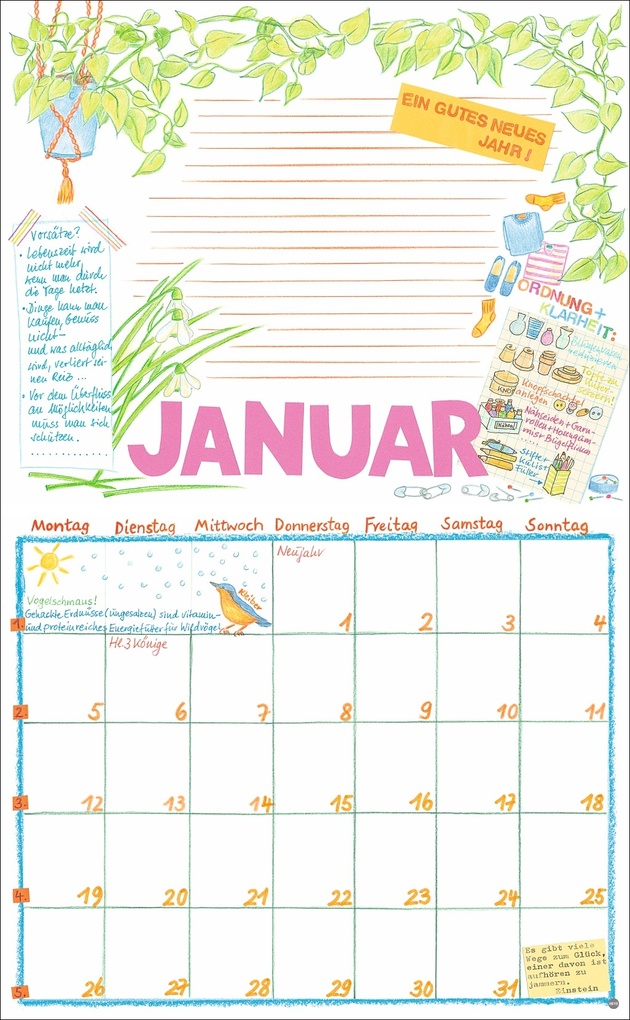 EIN GUTES NEUES
JAHR!
Vorsätze?
• Lebenszeit wird
nicht mehr,
wenn man durch
die Tage hetzt.
• Dinge kann man
kaufen, Genuss
nicht –
und was alltäglich
wird, verliert sei-
nen Reiz ...
• Vor dem Überfluss
an Möglichkeiten
muss man sich
schützen.
..........
ORDNUNG+
KLARHEIT:
Knopfschachtel
anlegen
KNÖ
Nähseiden + Garn-
rollen + Hosengum-
mis + Bügelflicken
Stifte
Füller
JANUAR
Montag Dienstag Mittwoch Donnerstag Freitag Samstag Sonntag
Neujahr
Vogelschmaus!
Kleiber
Gehackte Erdnüsse (ungesalzen) sind vitamin-
und proteinreiches Energiefutter für Wildvögel
1. 1 2 3 4
Hl. 3 Könige
2. 5 6 7 8 9 10 11
3. 12 13 14 15 16 17 18
4. 19 20 21 22 23 24 25
5. 26 27 28 29 30 31
Es gibt viele
Wege zum Glück,
einer davon ist
aufhören zu
jammern.
Einstein